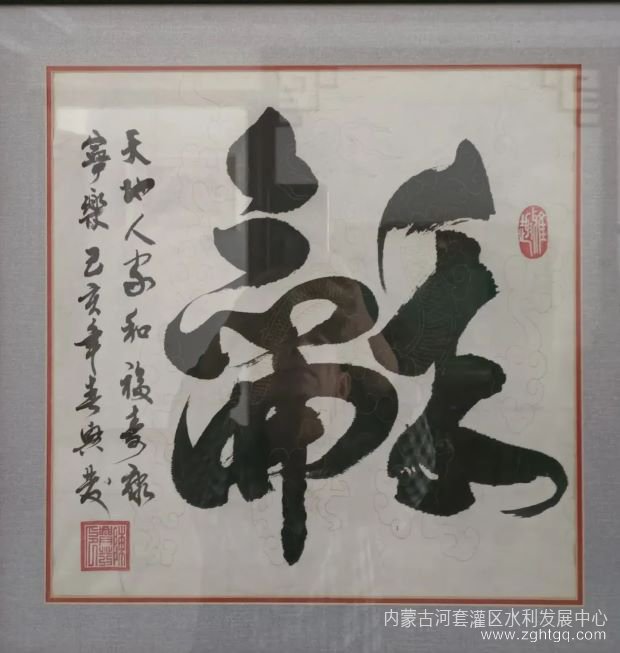 天地人家和福壽康
寧樂己亥年春興發
内蒙古河套灌区水利发展中心
www.zghtgq.com